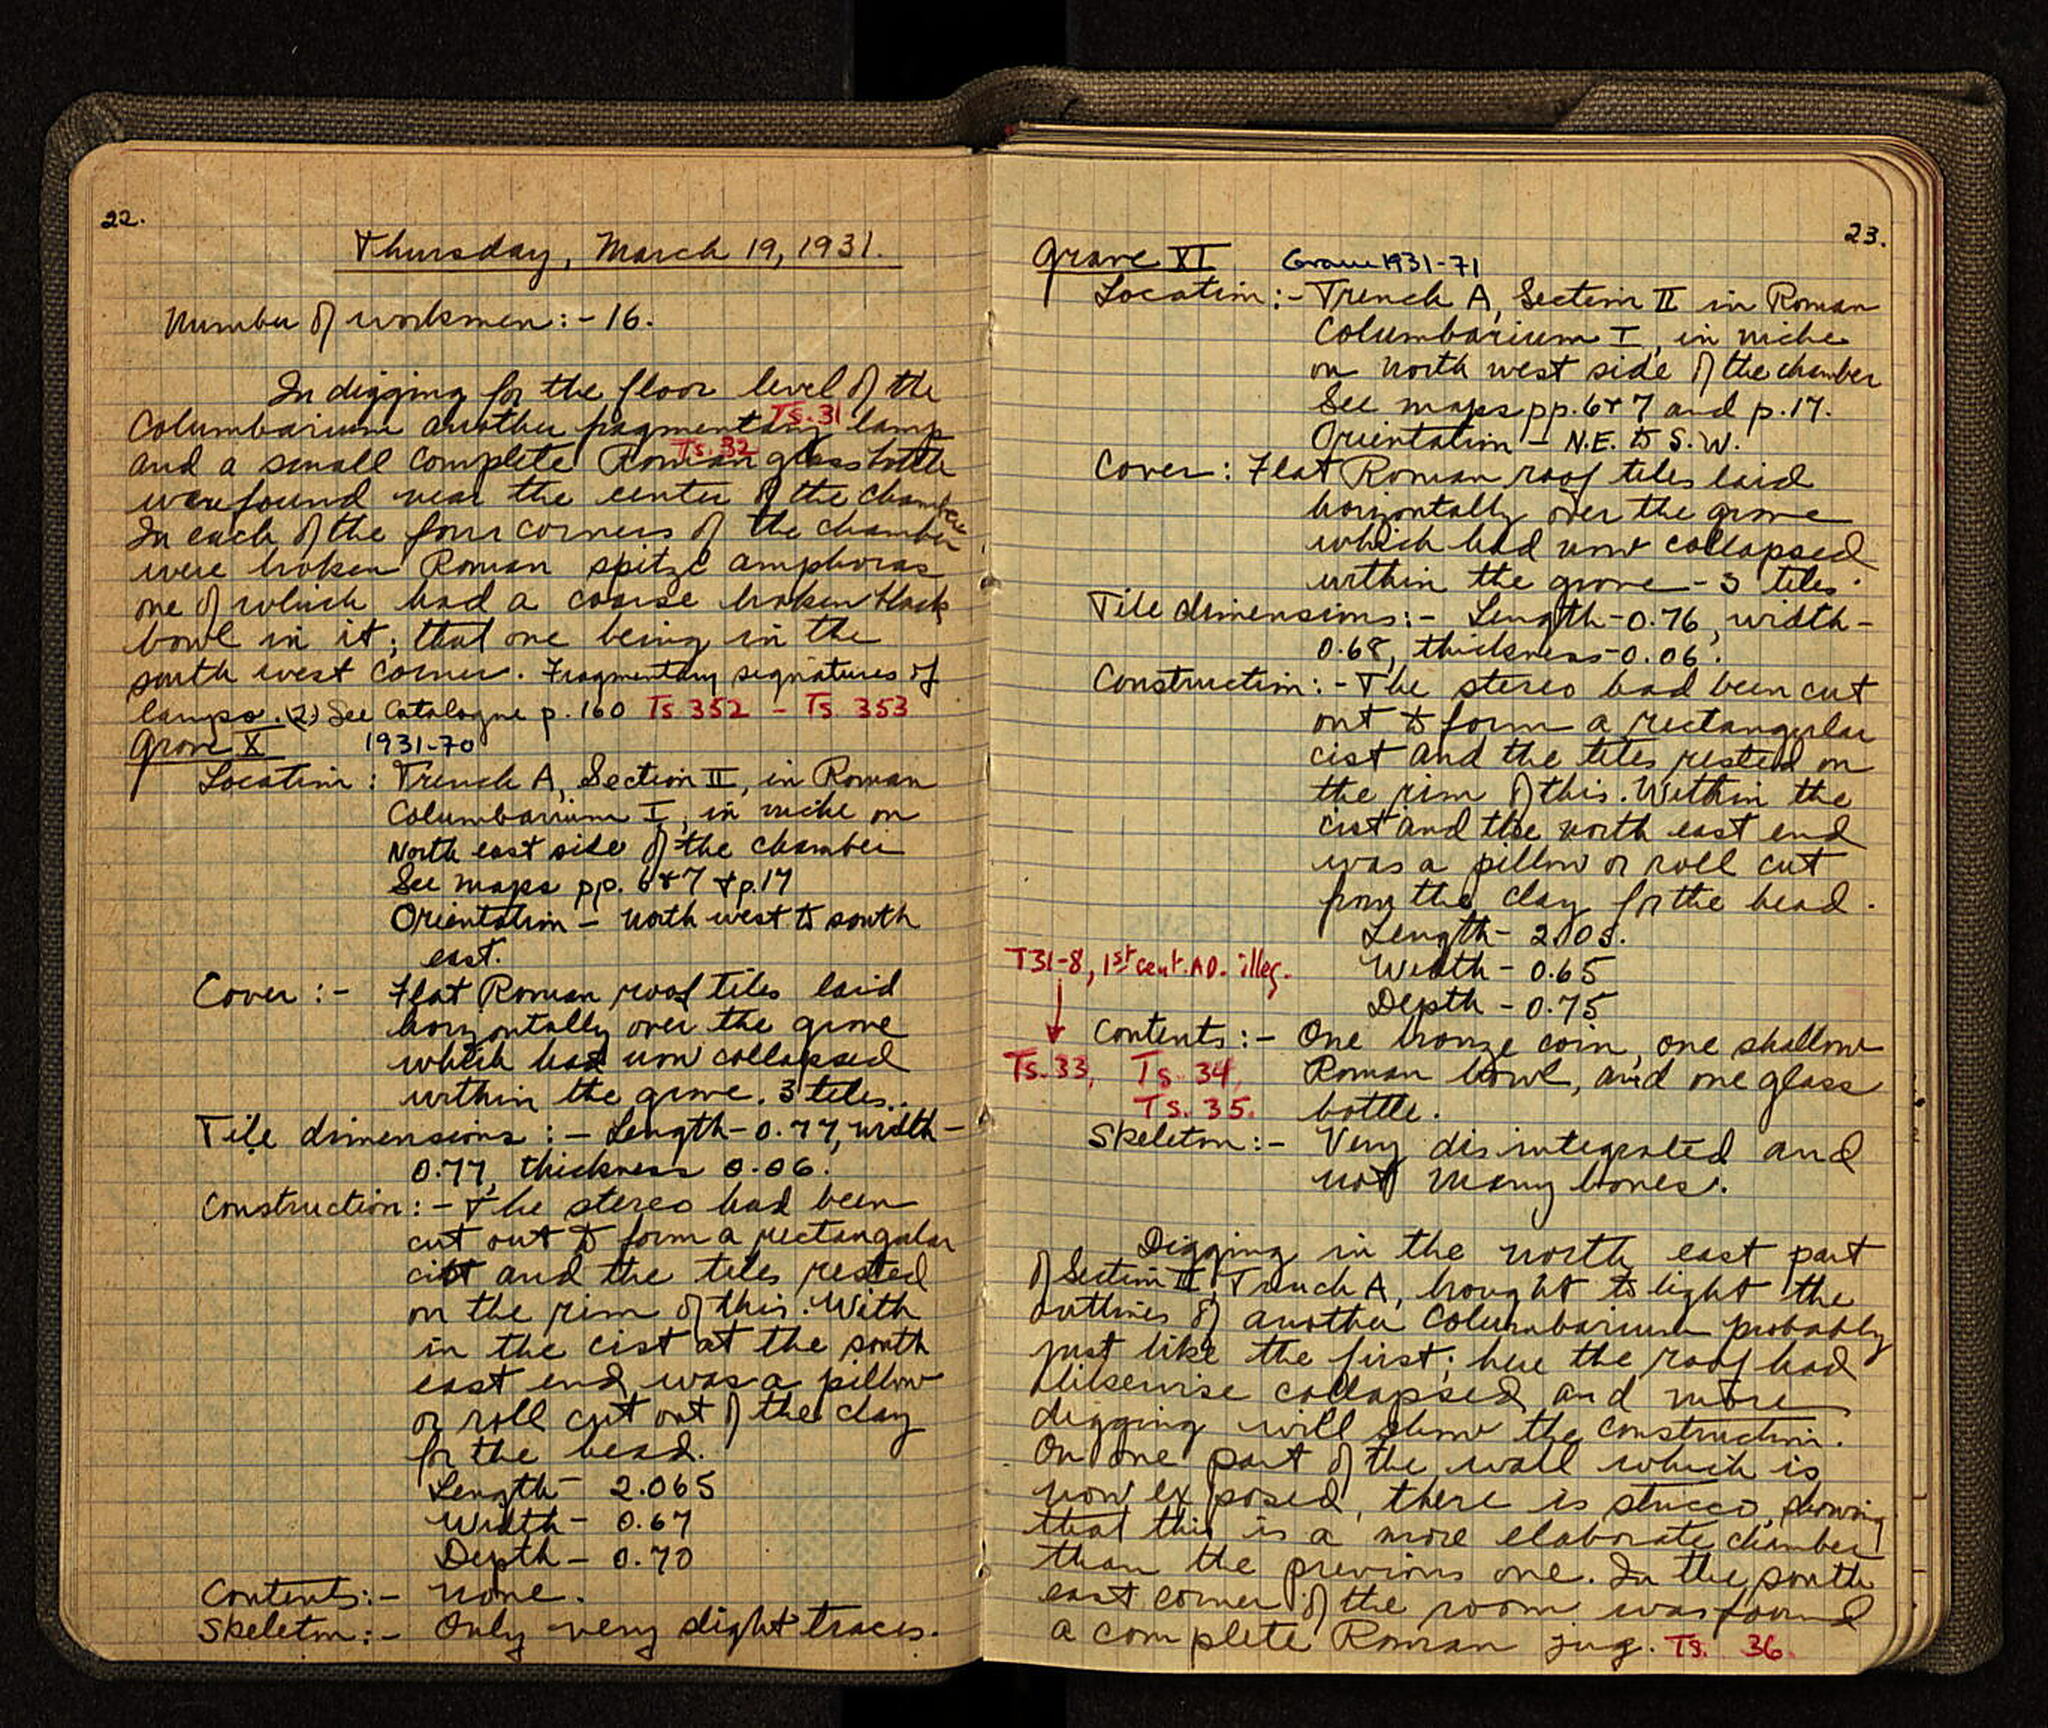 22.
Thursday, March 19, 1931.
Number of workmen:- 16.
In digging for the floor level of the
Ts. 31
Columbarium another fragmentary lamp
Ts. 32
and a small complete Roman glass bottle
were found near the center of the chamber
In each of the four corners of the chamber
were broken Roman spitze amphoras
one of which had a coarse broken black
bowl in it; that one being in the
south west corner. Fragmentary signatures of
lamps. (2) See Catalogue p. 160 Ts 352 - Ts. 353
Grave X 1931-70
Location: Trench A, Section II, in Roman
Columbarium I, in niche on
North east side of the chamber
See maps pp. 6 & 7 & p. 17
Orientation - north west to south
east.
Cover:- Flat Roman roof tiles laid
horizontally over the grave
which had now collapsed
within the grave. 3 tiles.
Tile dimensions:- Length - 0.77, width -
0.77, thickness 0.06.
Construction:- The stereo had been
cut out to form a rectangular
cist and the tiles rested
on the rim of this. With
in the cist at the south
east end was a pillow
or roll cut out of the clay
for the head.
Length - 2.065
Width - 0.67
Depth - 0.70
Contents:- none.
Skeleton:- Only very slight traces.
23.
Grave XI Grave 1931-71
Location:- Trench A, Section II in Roman
Columbarium I, in niche
on north west side of the chamber
See maps pp. 6 & 7 and p. 17.
Orientation - N.E. to S.W.
Cover: Flat Roman roof tiles laid
horizontally over the grave
which had now collapsed
within the grave - 3 tiles.
Tile dimensions:- Length - 0.76, width -
0.68, thickness - 0.06.
Construction:- The stereo had been cut
out to form a rectangular
cist and the tiles rested on
the rim of this. Within the
cist and the north east end
was a pillow or roll cut
from the clay for the head.
Length - 2.05.
T31-8, 1st cent. A.D. illeg.
Width - 0.65
Depth - 0.75
Contents:- One bronze coin, one shallow
Ts. 33, Ts. 34, Roman bowl, and one glass
Ts. 35. bottle.
Skeleton:- Very disintegrated and
not many bones.
Digging in the north east part
of Section II, Trench A, brought to light the
outlines of another Columbarium probably
just like the first; here the roof had
likewise collapsed and more
digging will show the construction.
On one part of the wall which is
now exposed, there is stucco, showing
that this is a more elaborate chamber
than the previous one. In the south
east corner of the room was found
a complete Roman jug. Ts. 36.